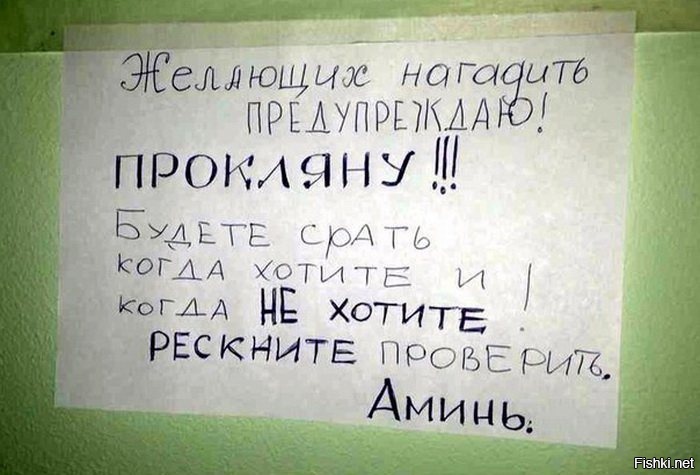 Желающих нагадить
ПРЕДУПРЕЖДАЮ!
ПРОКЛЯНУ!!!
БУДЕТЕ СРАТЬ
КОГДА ХОТИТЕ И
КОГДА НЕ ХОТИТЕ!
РЕСКНИТЕ ПРОВЕРИТЬ.
АМИНЬ.
Fishki.net